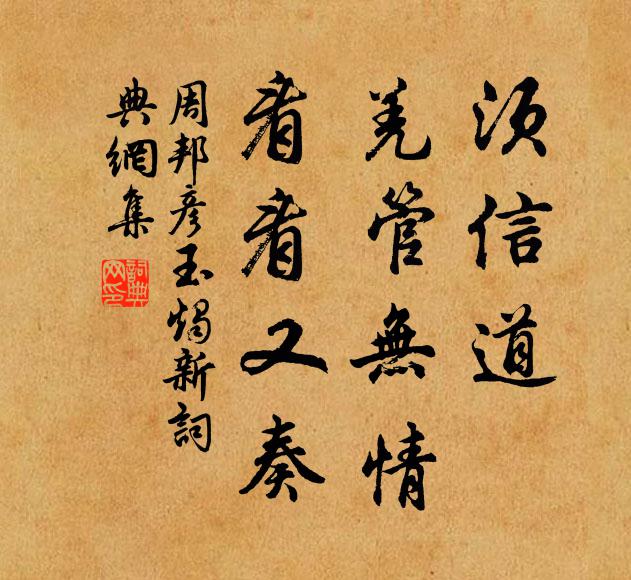 須信道
羌管無情
看看又奏
周邦彦玉燭新詞
典網集
詞典
網印